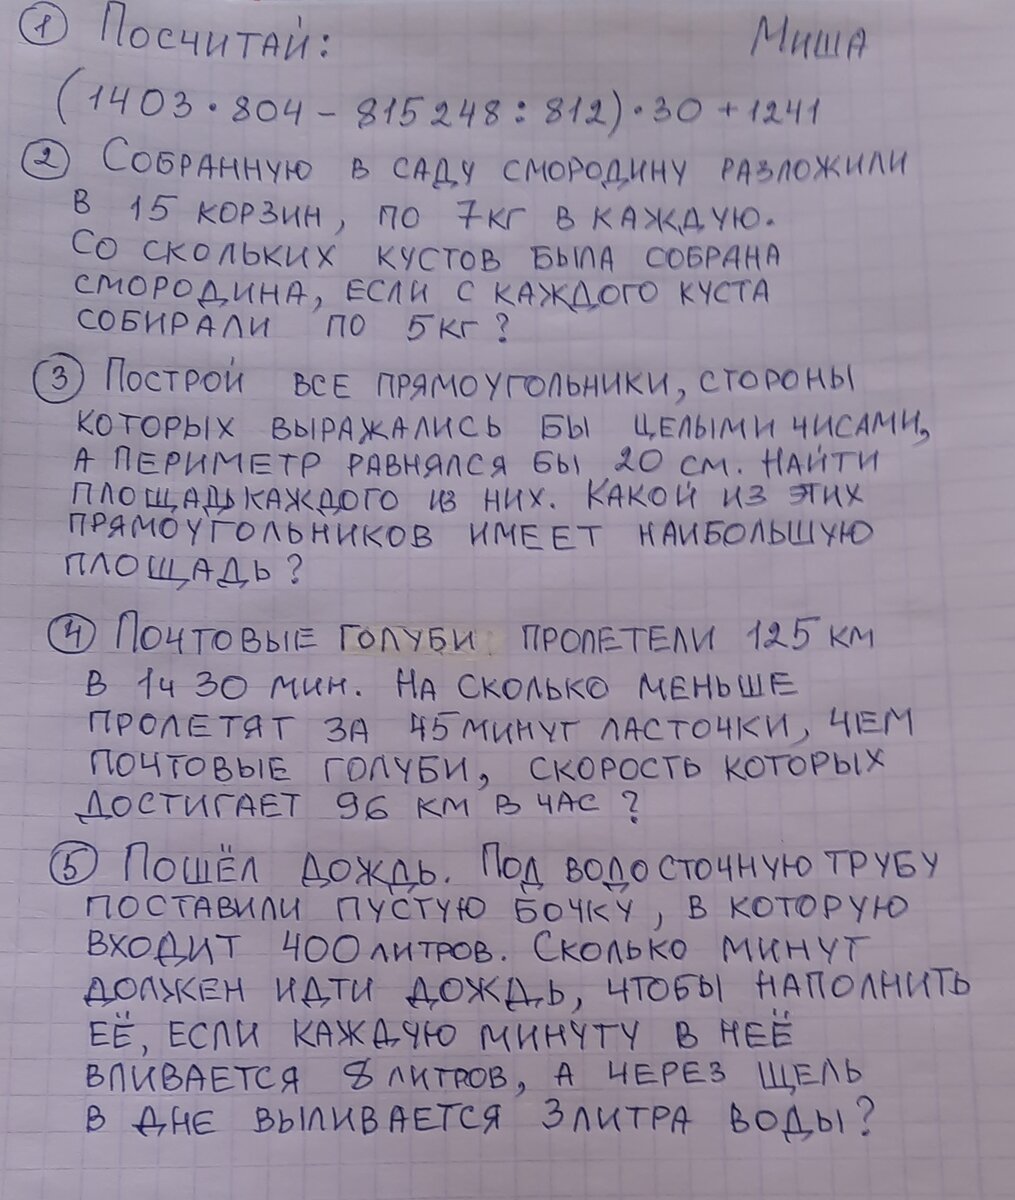 1 Посчитай: Миша
(1403 · 804 - 815248 : 812) · 30 + 1241
2 Собранную в саду смородину разложили
в 15 корзин, по 7кг в каждую.
Со скольких кустов была собрана
смородина, если с каждого куста
собирали по 5кг?
3 Построй все прямоугольники, стороны
которых выражались бы целыми чисами,
а периметр равнялся бы 20 см. Найти
площадь каждого из них. Какой из этих
прямоугольников имеет наибольшую
площадь?
4 Почтовые голуби пролетели 125 км
в 1ч 30 мин. На сколько меньше
пролетят за 45 минут ласточки, чем
почтовые голуби, скорость которых
достигает 96 км в час?
5 Пошёл дождь. Под водосточную трубу
поставили пустую бочку, в которую
входит 400 литров. Сколько минут
должен идти дождь, чтобы наполнить
её, если каждую минуту в неё
вливается 8 литров, а через щель
в дне выливается 3 литра воды?